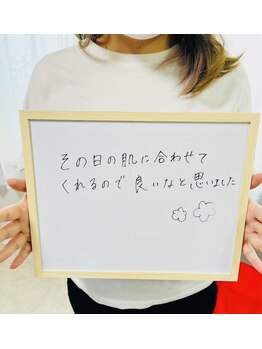 その日の肌に合わせて
くれるので良いなと思いました